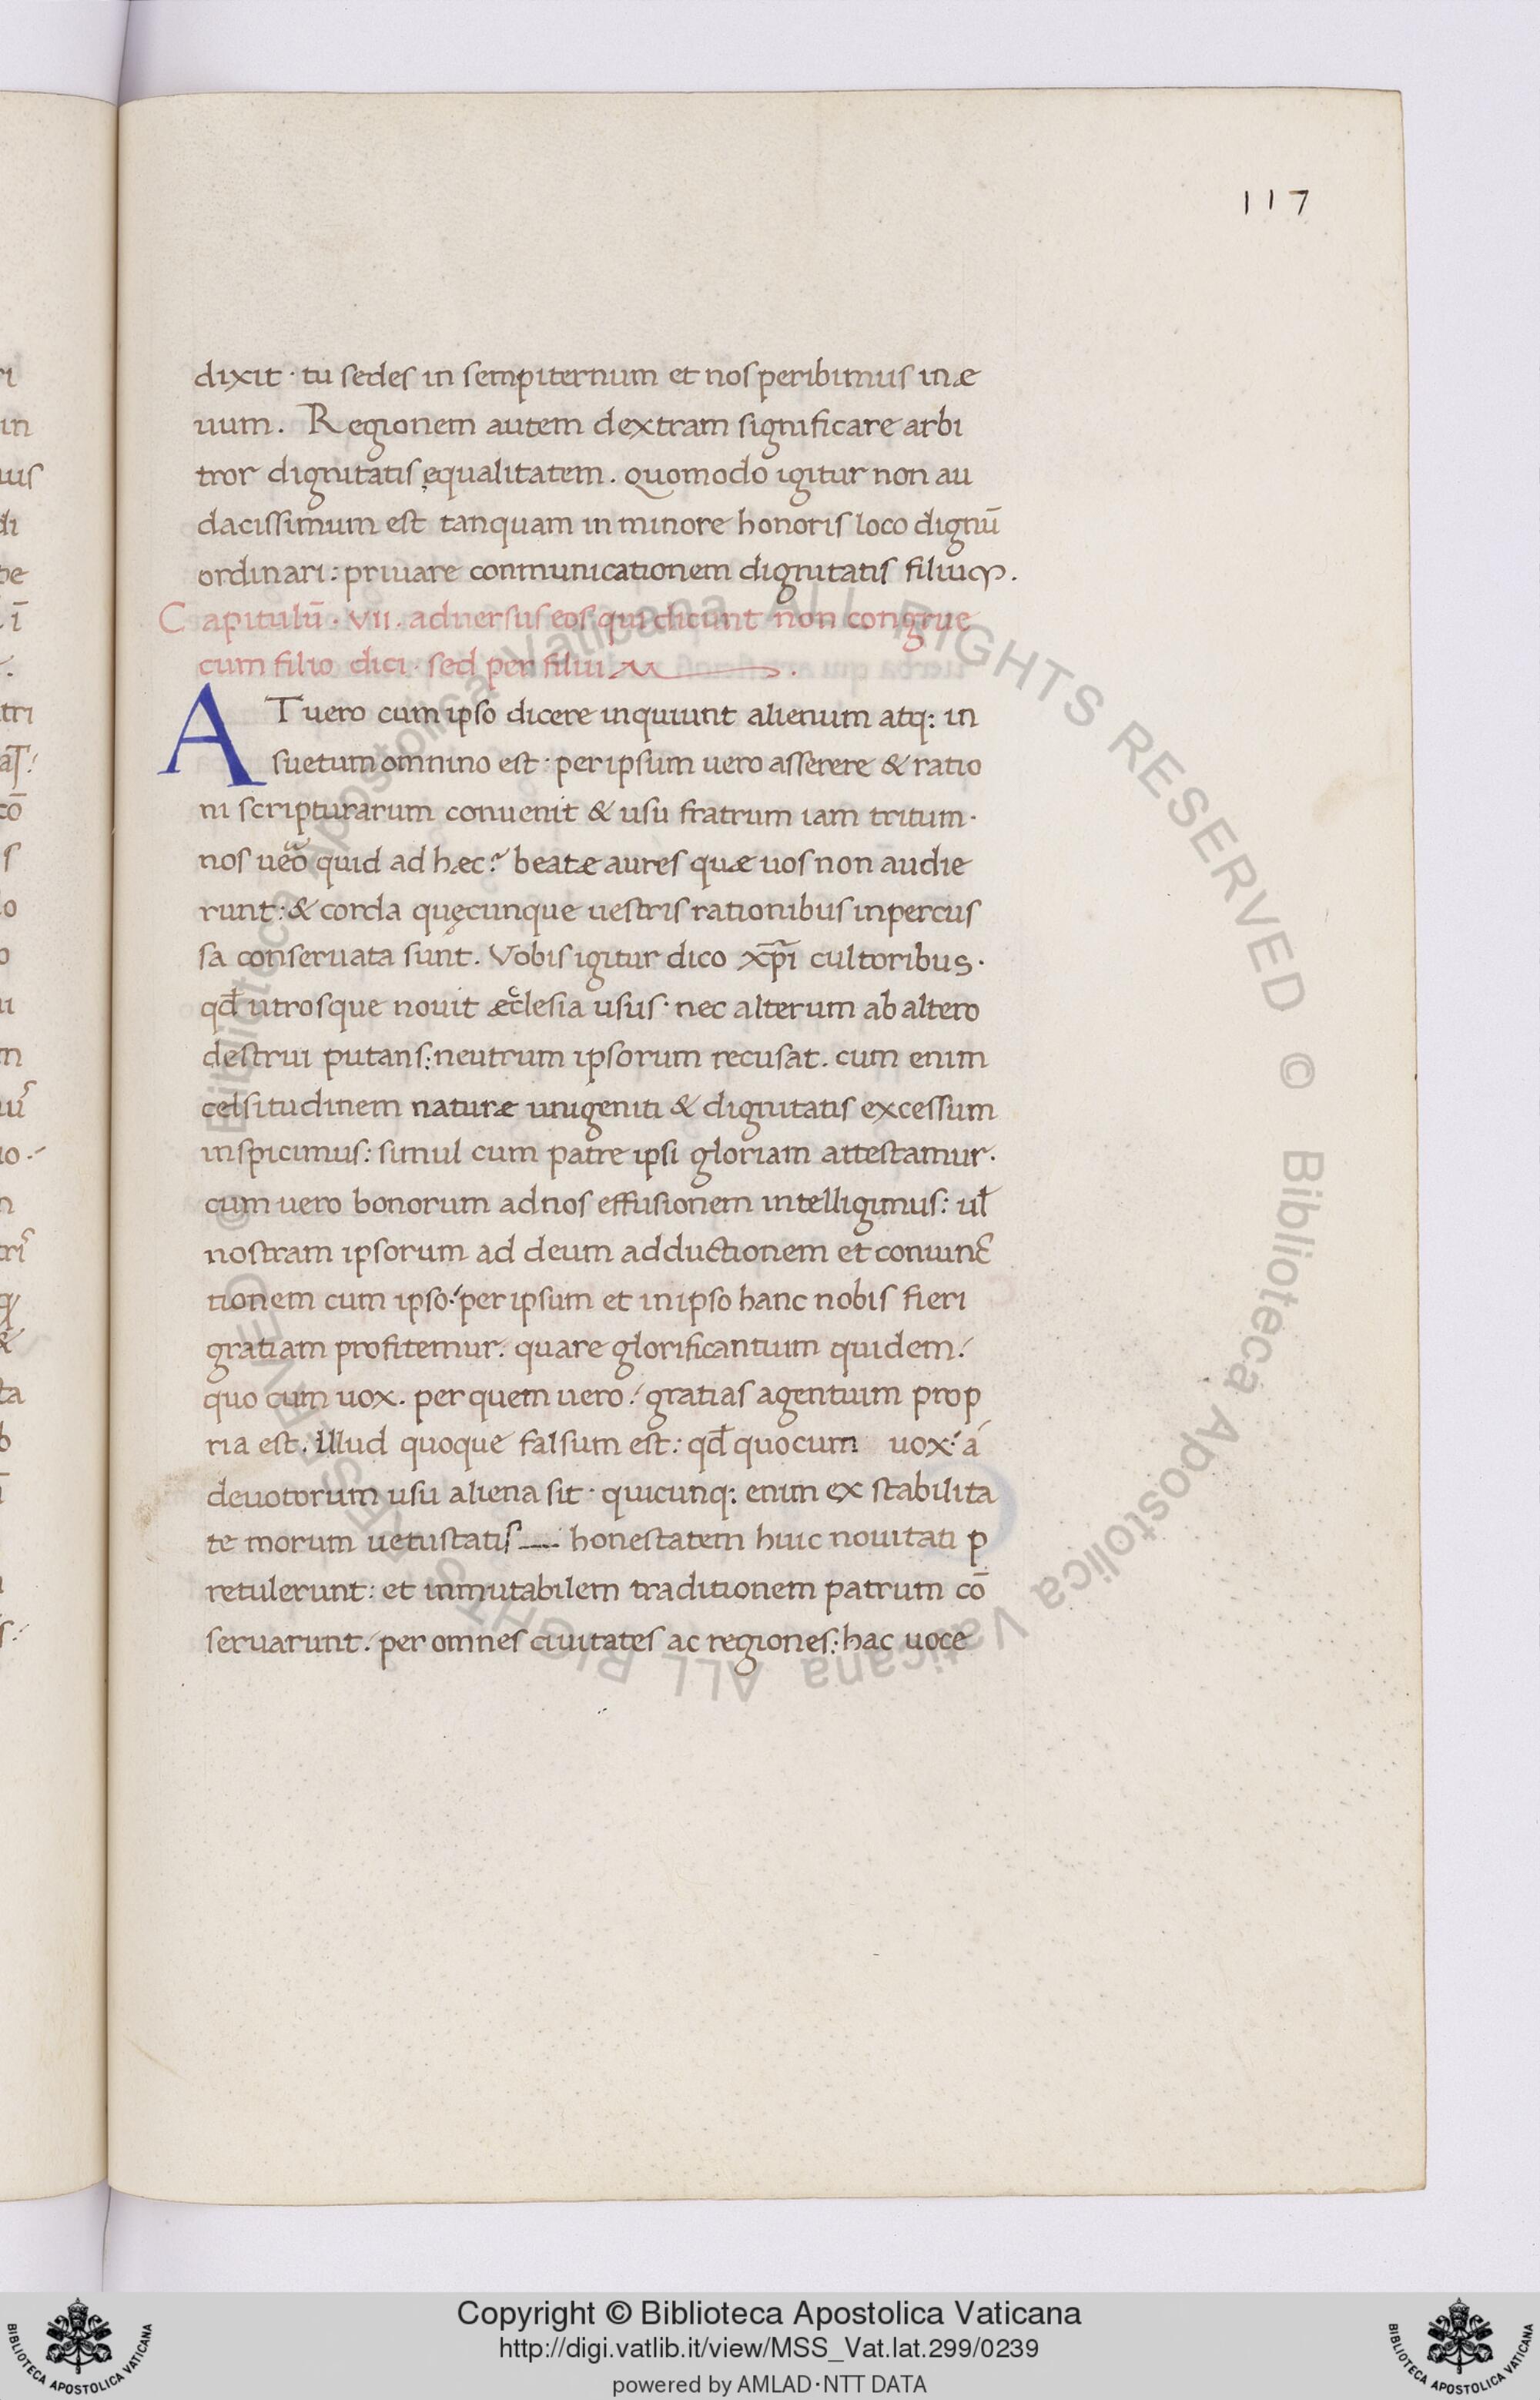 117
dixit · tu sedes in sempiternum et nos peribimus in æ
uum. Regionem autem dextram significare arbi
tror dignitatis ęqualitatem. Quomodo igitur non au
dacissimum est tanquam in minore honoris loco dignū
ordinari: priuare conmunicationem dignitatis filium.
Capitulū · VII · aduersus eos qui dicunt non congrue
cum filio dici · sed per filium.
AT uero cum ipso dicere inquiunt alienum atq: in
suetum omnino est: per ipsum uero asserere & ratio
ni scripturarum conuenit & usu fratrum iam tritum·
nos ueo quid ad hæc? beatæ aures quæ uos non audie
runt: & corda quęcunque uestris rationibus inpercus
sa conseruata sunt. Vobis igitur dico xp̄i cultoribus·
qđ utrosque nouit æcclesia usus· nec alterum ab altero
destrui putans: neutrum ipsorum recusat. cum enim
celsitudinem naturæ unigeniti & dignitatis excessum
inspicimus: simul cum patre ipsi gloriam attestamur.
cum uero bonorum ad nos effusionem intelligimus: uł
nostram ipsorum ad deum adductionem et coniunc
tionem cum ipso: per ipsum et in ipso hanc nobis fieri
gratiam profitemur. quare glorificantium quidem:
quo cum uox. per quem uero: gratias agentium prop
ria est. Illud quoque falsum est: qđ quocum uox: a
deuotorum usu aliena sit· quicunq: enim ex stabilita
te morum uetustatis honestatem huic nouitati p
retulerunt: et inmutabilem traditionem patrum cō
seruarunt. per omnes ciuitates ac regiones: hac uoce
© Biblioteca Apostolica Vaticana ALL RIGHTS RESERVED
© Biblioteca Apostolica Vaticana ALL RIGHTS RESERVED
Copyright © Biblioteca Apostolica Vaticana
http://digi.vatlib.it/view/MSS_Vat.lat.299/0239
powered by AMLAD·NTT DATA
BIBLIOTECA APOSTOLICA VATICANA
BIBLIOTECA APOSTOLICA VATICANA